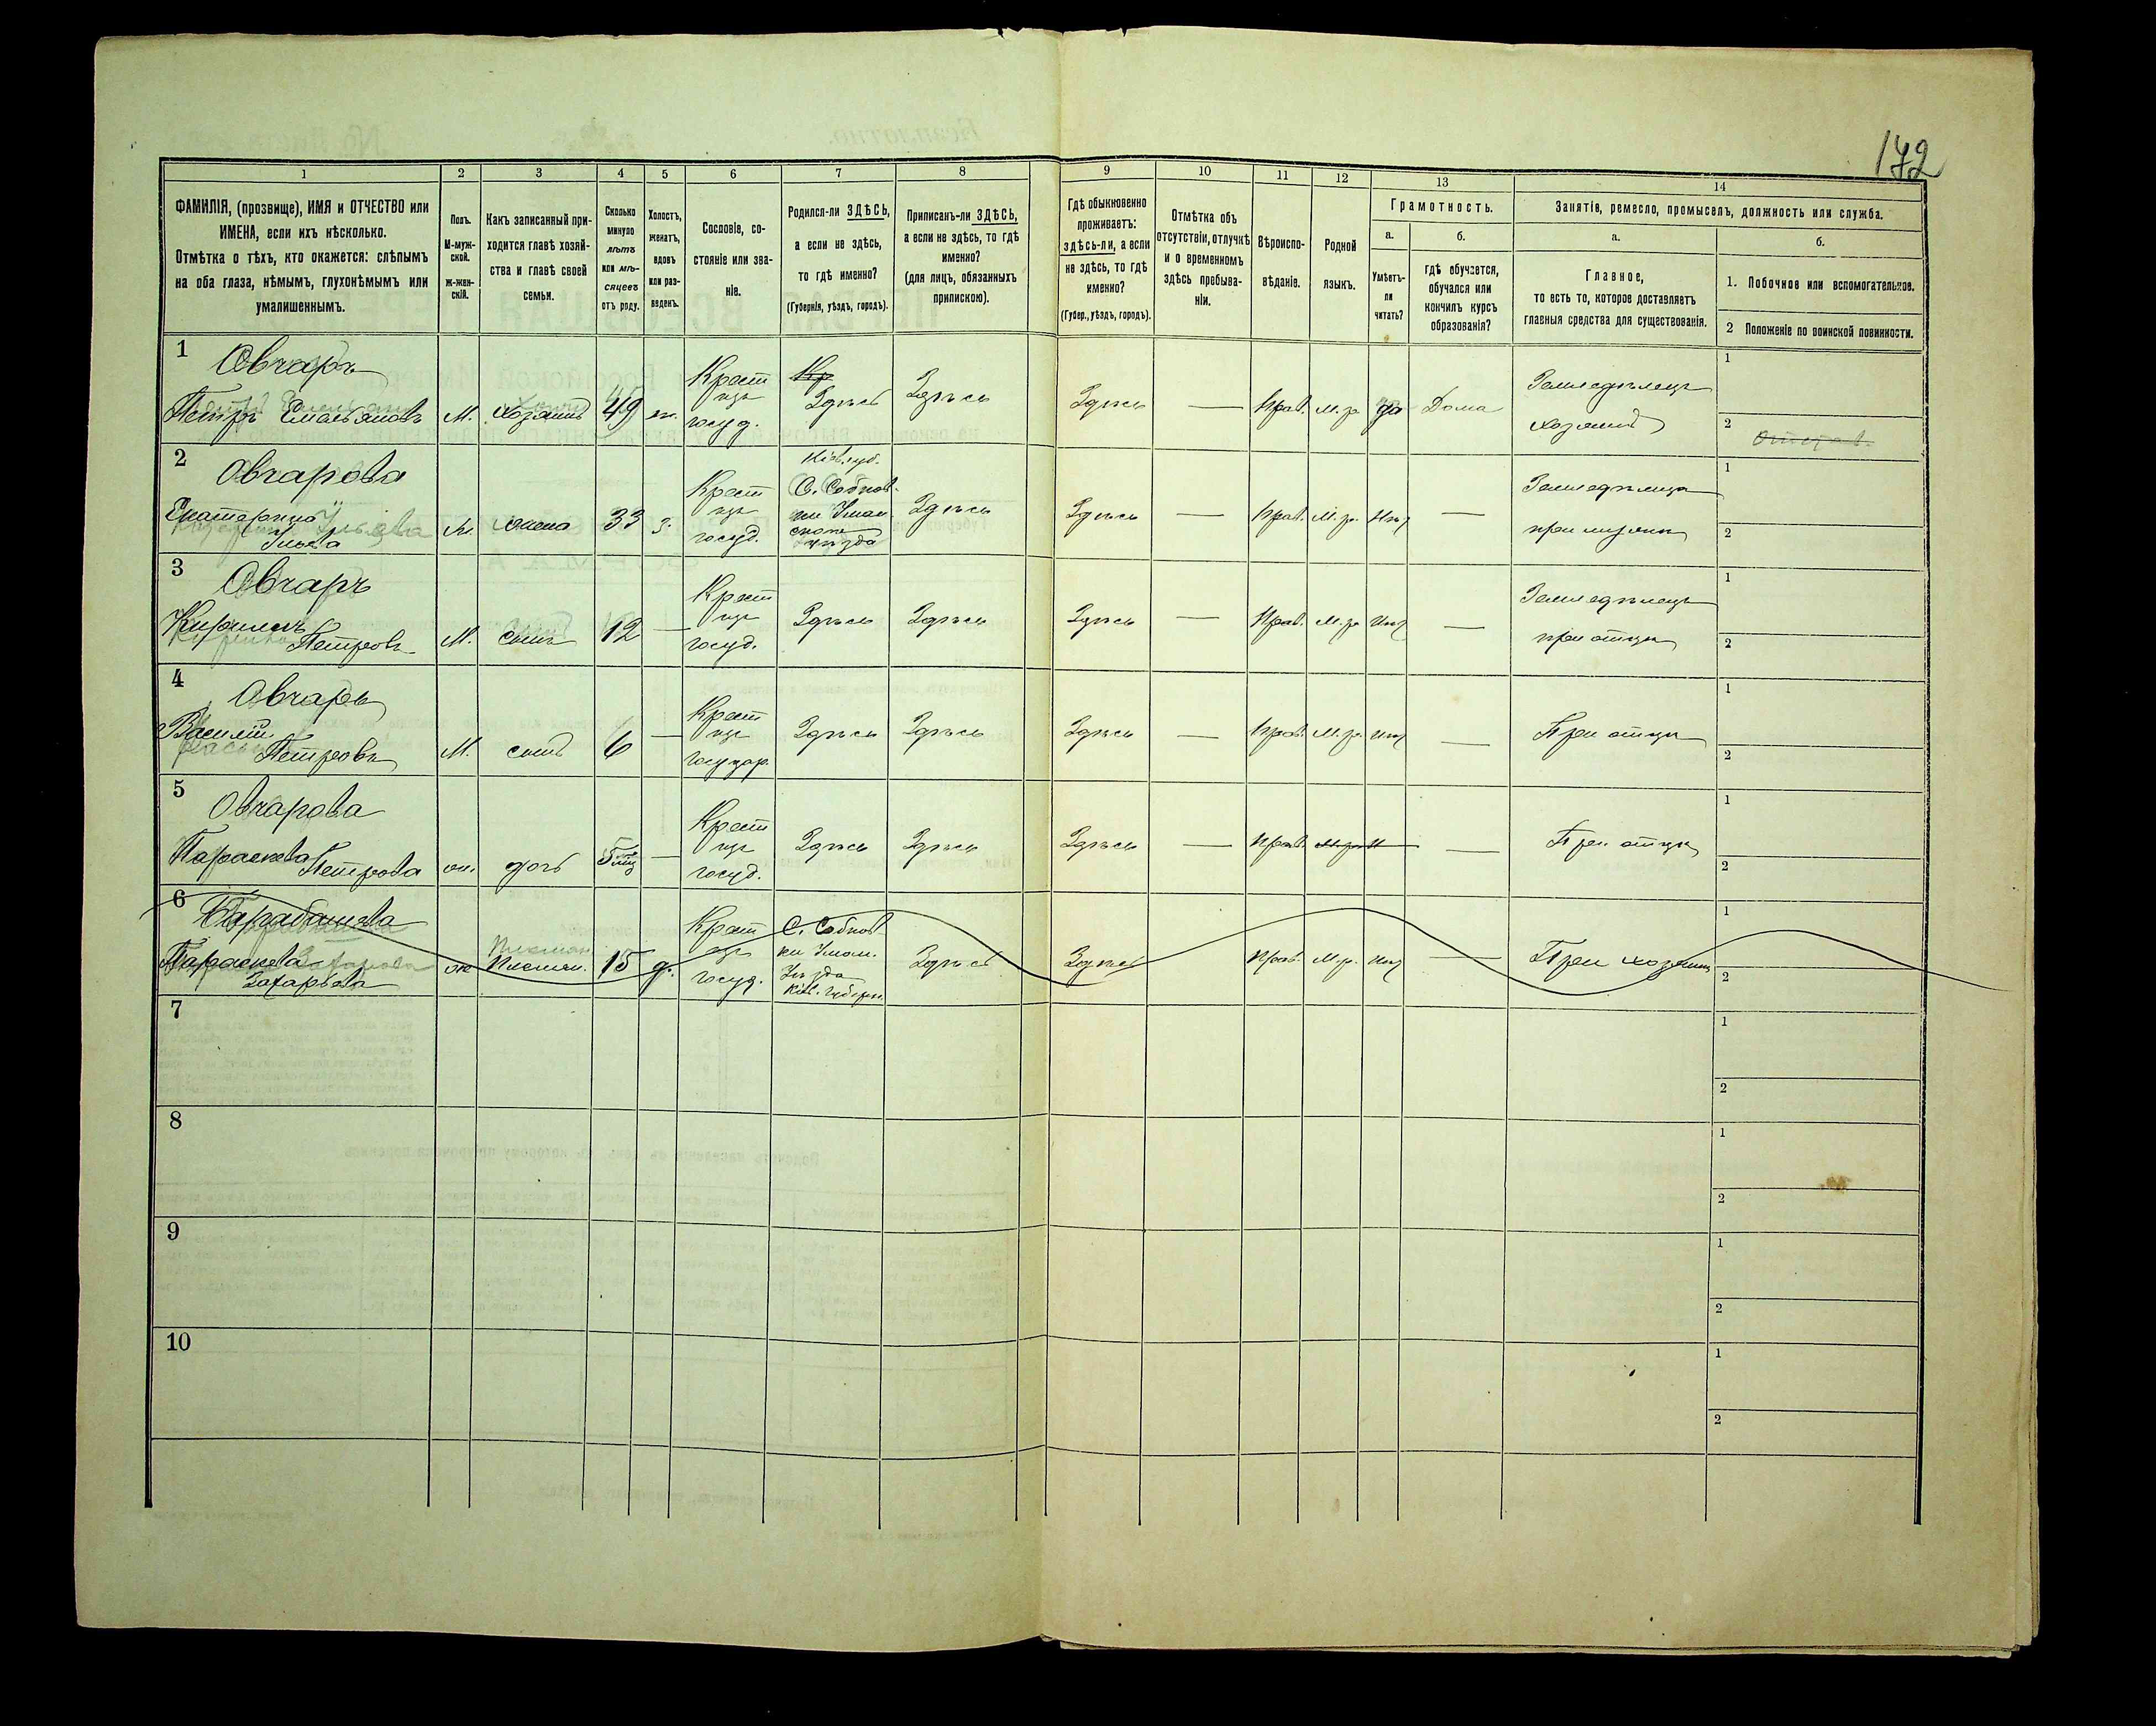 172
1
2
3
4
5
6
7
8
9
10
11
12
13
14
ФАМИЛІЯ, (прозвище), ИМЯ и ОТЧЕСТВО или
ИМЕНА, если ихъ нѣсколько.
Отмѣтка о тѣхъ, кто окажется: слѣпымъ
на оба глаза, нѣмымъ, глухонѣмымъ или
умалишеннымъ.
Полъ.
М-муж-
ской.
ж-жен-
скій.
Какъ записанный при-
ходится главѣ хозяй-
ства и главѣ своей
семьи.
Сколько
минуло
лѣтъ
или мѣ-
сяцевъ
отъ роду.
Холостъ,
женатъ,
вдовъ
или раз-
веденъ.
Сословіе, со-
стояніе или зва-
ніе.
Родился-ли ЗДѢСЬ,
а если не здѣсь,
то гдѣ именно?
(Губернія, уѣздъ, городъ).
Приписанъ-ли ЗДѢСЬ,
а если не здѣсь, то гдѣ
именно?
(для лицъ, обязанныхъ
припискою).
Гдѣ обыкновенно
проживаетъ:
здѣсь-ли, а если
не здѣсь, то гдѣ
именно?
(Губер., уѣздъ, городъ).
Отмѣтка объ
отсутствіи, отлучкѣ
и о временномъ
здѣсь пребыва-
ніи.
Вѣроиспо-
вѣданіе.
Родной
языкъ.
Грамотность.
а.
Умѣетъ-
ли
читать?
б.
гдѣ обучается,
обучался или
кончилъ курсъ
образованія?
Занятіе, ремесло, промыселъ, должность или служба.
а.
Главное,
то есть то, которое доставляетъ
главныя средства для существованія.
б.
1. Побочное или вспомогательное.
2 Положеніе по воинской повинности.
1
Овчаръ
Петръ Емельяновъ
М.
хозяинъ
49
Крест
госуд.
Здѣсь
Здѣсь
Здѣсь
—
Прав.
М. р.
да
Дома
Земледѣлецъ
хозяинъ
1
2
2
Овчарова
Екатерина
Ильева
жена
33
з.
Крест
госуд.
Кіев. губ.
Уман
уѣзда
Здѣсь
Здѣсь
—
Прав.
М. р.
Нѣт
—
при мужѣ
1
2
3
Овчаръ
Кириллъ
Петровъ
М.
сынъ
12
—
Крест
госуд.
Здѣсь
Здѣсь
Здѣсь
—
Прав.
М. р.
Нѣт
—
Земледѣлецъ
при отцѣ
1
2
4
Овчаръ
Василій
Петровъ
М.
сынъ
6
—
Крест
государ.
Здѣсь
Здѣсь
Здѣсь
—
Прав.
М. р.
Нѣт
—
При отцѣ
1
2
5
Овчарова
Параскева
Петрова
ж.
дочь
5
—
Крест
госуд.
Здѣсь
Здѣсь
Здѣсь
—
Прав.
—
При отцѣ
1
2
6
Параскева
Захарьева
Племян.
15
д.
Крест
госуд.
Уман.
Уѣзда
Кіев. Губерн.
Здѣсь
Здѣсь
Прав.
М. р.
Нѣт
—
При хозяинѣ
1
2
7
1
2
8
1
2
9
1
2
10
1
2